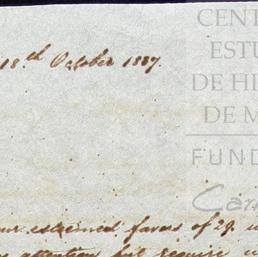 18th October 1887.
CENT
ESTU
DE HI
DE M
FUND
Car
our esteemed favors of 29. u
attention but require